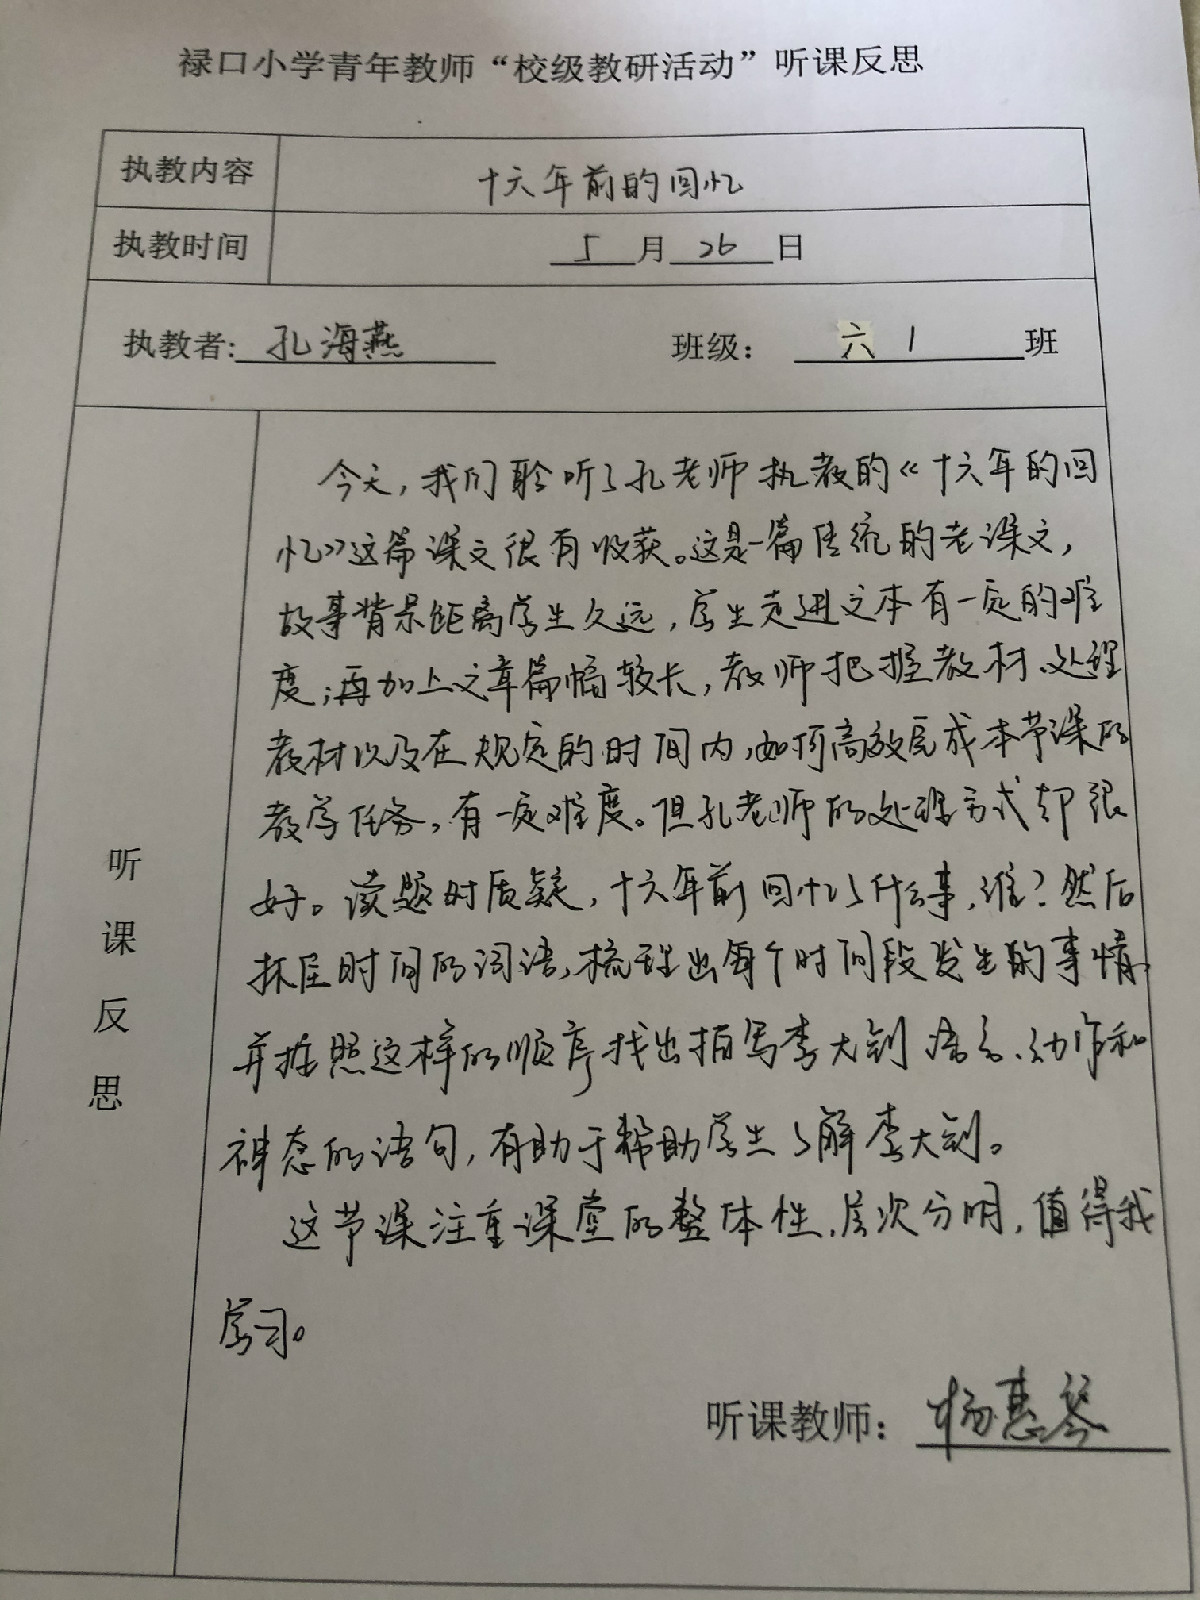 禄口小学青年教师“校级教研活动”听课反思
执教内容 十六年前的回忆
执教时间 5月26日
执教者:孔海燕 班级：六1班
听课反思
今天，我们聆听了孔老师执教的《十六年的回
忆》这篇课文很有收获。这是一篇传统的老课文，
故事背景距离学生久远，学生走进文本有一定的难
度；再加上文章篇幅较长，教师把握教材、处理
教材以及在规定的时间内，如何高效完成本节课的
教学任务，有一定难度。但孔老师的处理方式却很
好。读题时质疑，十六年前回忆了什么事，谁？然后
抓住时间的词语，梳理出每个时间段发生的事情，
并按照这样的顺序找出描写李大钊语言、动作和
神态的语句，有助于帮助学生了解李大钊。
这节课注重课堂的整体性，层次分明，值得我
学习。
听课教师：杨惠琴